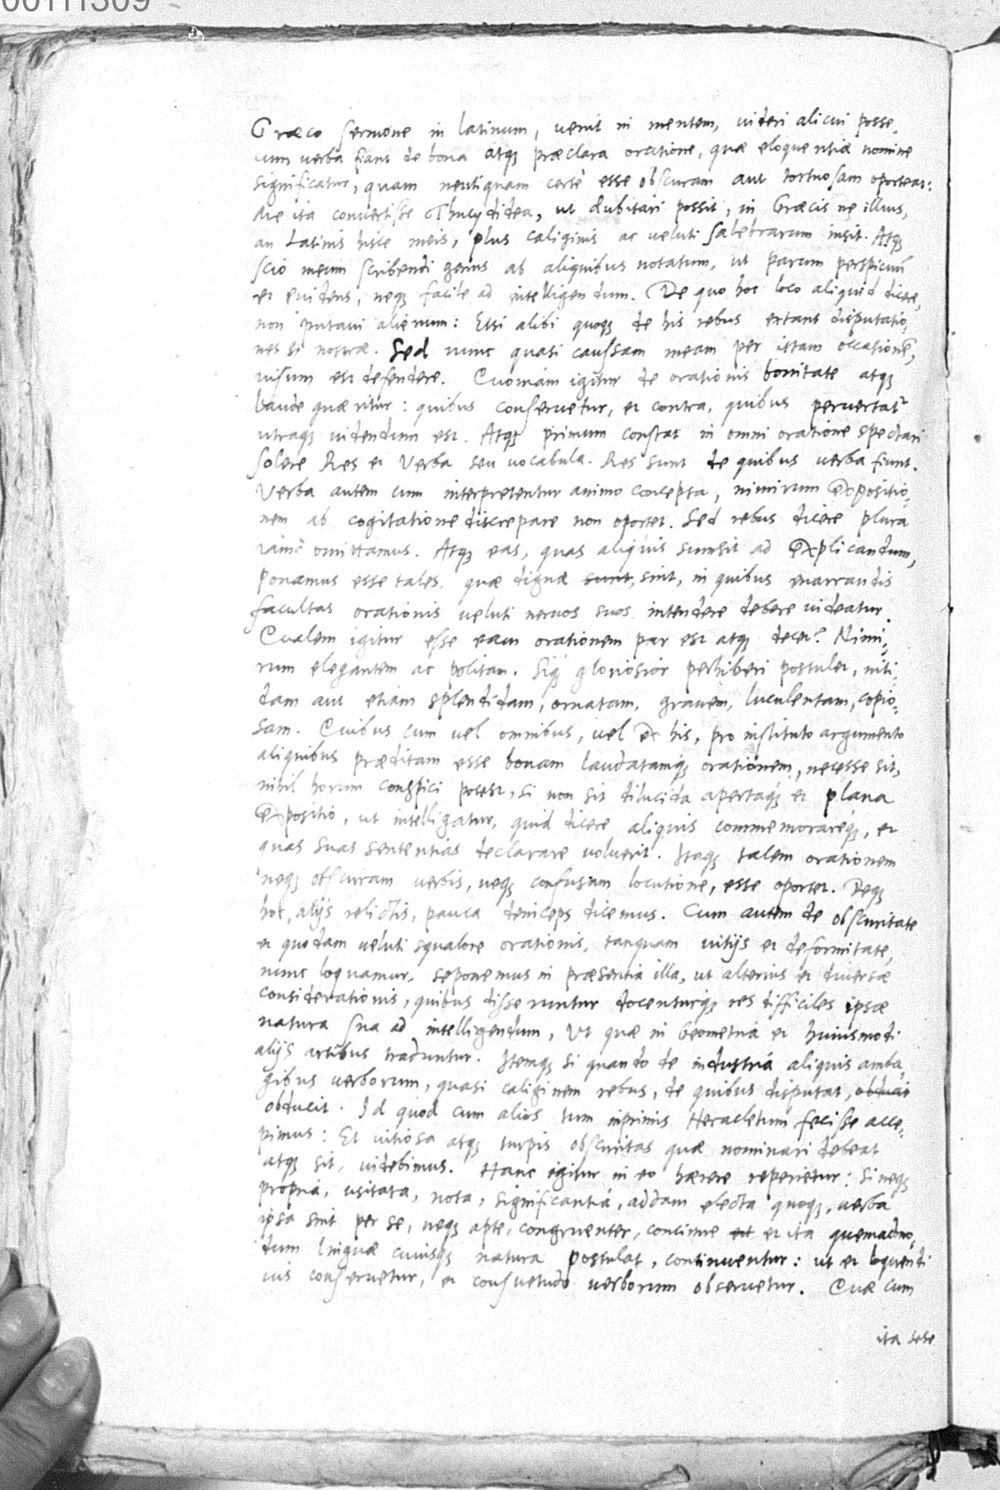 00111309
Græco sermone in latinum, venit in mentem, videri alicui posse,
cum verba fiant de bona atq; præclara oratione, quæ eloquentiæ nomine
significatur, quam neutiquam certè esse obscuram aut tortuosam oporteat:
me ita convertisse Thucydidea, ut dubitari possit, in Græcis ne illius,
an Latinis hisce meis, plus caliginis ac veluti salebrarum insit. Atq;
scio meum scribendi genus ab aliquibus notatum, ut parum perspicuũ
et evidens, neq; facile ad intelligendum. De quo hoc loco aliquid dicere,
non putavi alienum: Etsi alibi quoq; de his rebus extant disputatio,
nes nostræ. Sed nunc quasi caussam meam per istam occasionẽ,
visum est defendere. Quoniam igitur de orationis bonitate atq;
laude quæritur: quibus conservetur, et contra, quibus pervertatʳ
utraq; videndum est. Atq; primum constat in omni oratione spectari
solere Res et Verba seu vocabula. Res sunt de quibus verba fiunt.
Verba autem cum interpretentur animo concepta, nimirum Expositio,
nem ab cogitatione discrepare non oportet. Sed rebus dicere plura
iam omittamus. Atq; eas, quas aliquis sumsit ad Explicandum,
ponamus esse tales, quæ dignæ sunt, sint, in quibus enarrandis
facultas orationis veluti nervos suos intendere debere videatur.
Qualem igitur esse eam orationem par est atq; decet? Nimi,
rum elegantem ac politam. Siq; gloriosior perhiberi postulet, niti,
dam aut etiam splendidam, ornatam, gravem, luculentam, copio,
sam. Quibus cum vel omnibus, vel Ex his, pro instituto argumento
aliquibus præditam esse bonam laudatamq; orationem, necesse sit,
nihil horum conspici potest, si non sit dilucida apertaq; et plana
Expositio, ut intelligatur, quid dicere aliquis commemorareq;, et
quas suas sententias declarare voluerit. Itaq; talem orationem
neq; obscuram verbis, neq; confusam locutione, esse oportet. Deq;
hoc, alijs relictis, pauca deinceps dicemus. Cum autem de obscuritate
et quodam veluti squalore orationis, tanquam vitijs et deformitate,
nunc loquamur, seponemus in præsentia illa, ut alterius et diversæ
considerationis, quibus disseruntur docenturq; res difficiles ipsæ
natura sua ad intelligendum, Ut quæ in Geometria et huiusmodi
alijs artibus traduntur. Itemq; si quando de industria aliquis amba,
gibus verborum, quasi caliginem rebus, de quibus disputat, obducit
obducit. Id quod cum alios tum inprimis Heracletum fecisse acce,
pimus: Et vitiosa atq; turpis obscuritas quæ nominari debeat
atq; sit, videbimus. Hanc igitur in eo hærere reperietur: Si neq;
propria, usitata, nota, significantia, addam electa quoq;, verba
ipsa sint per se, neq; apte, congruenter, concinne et et ita quemadmo,
dum linguæ cuiusq; natura postulat, continuentur: ut et loquendi
ius conservetur, et consuetudo verborum observetur. Quæ cum
ita sese